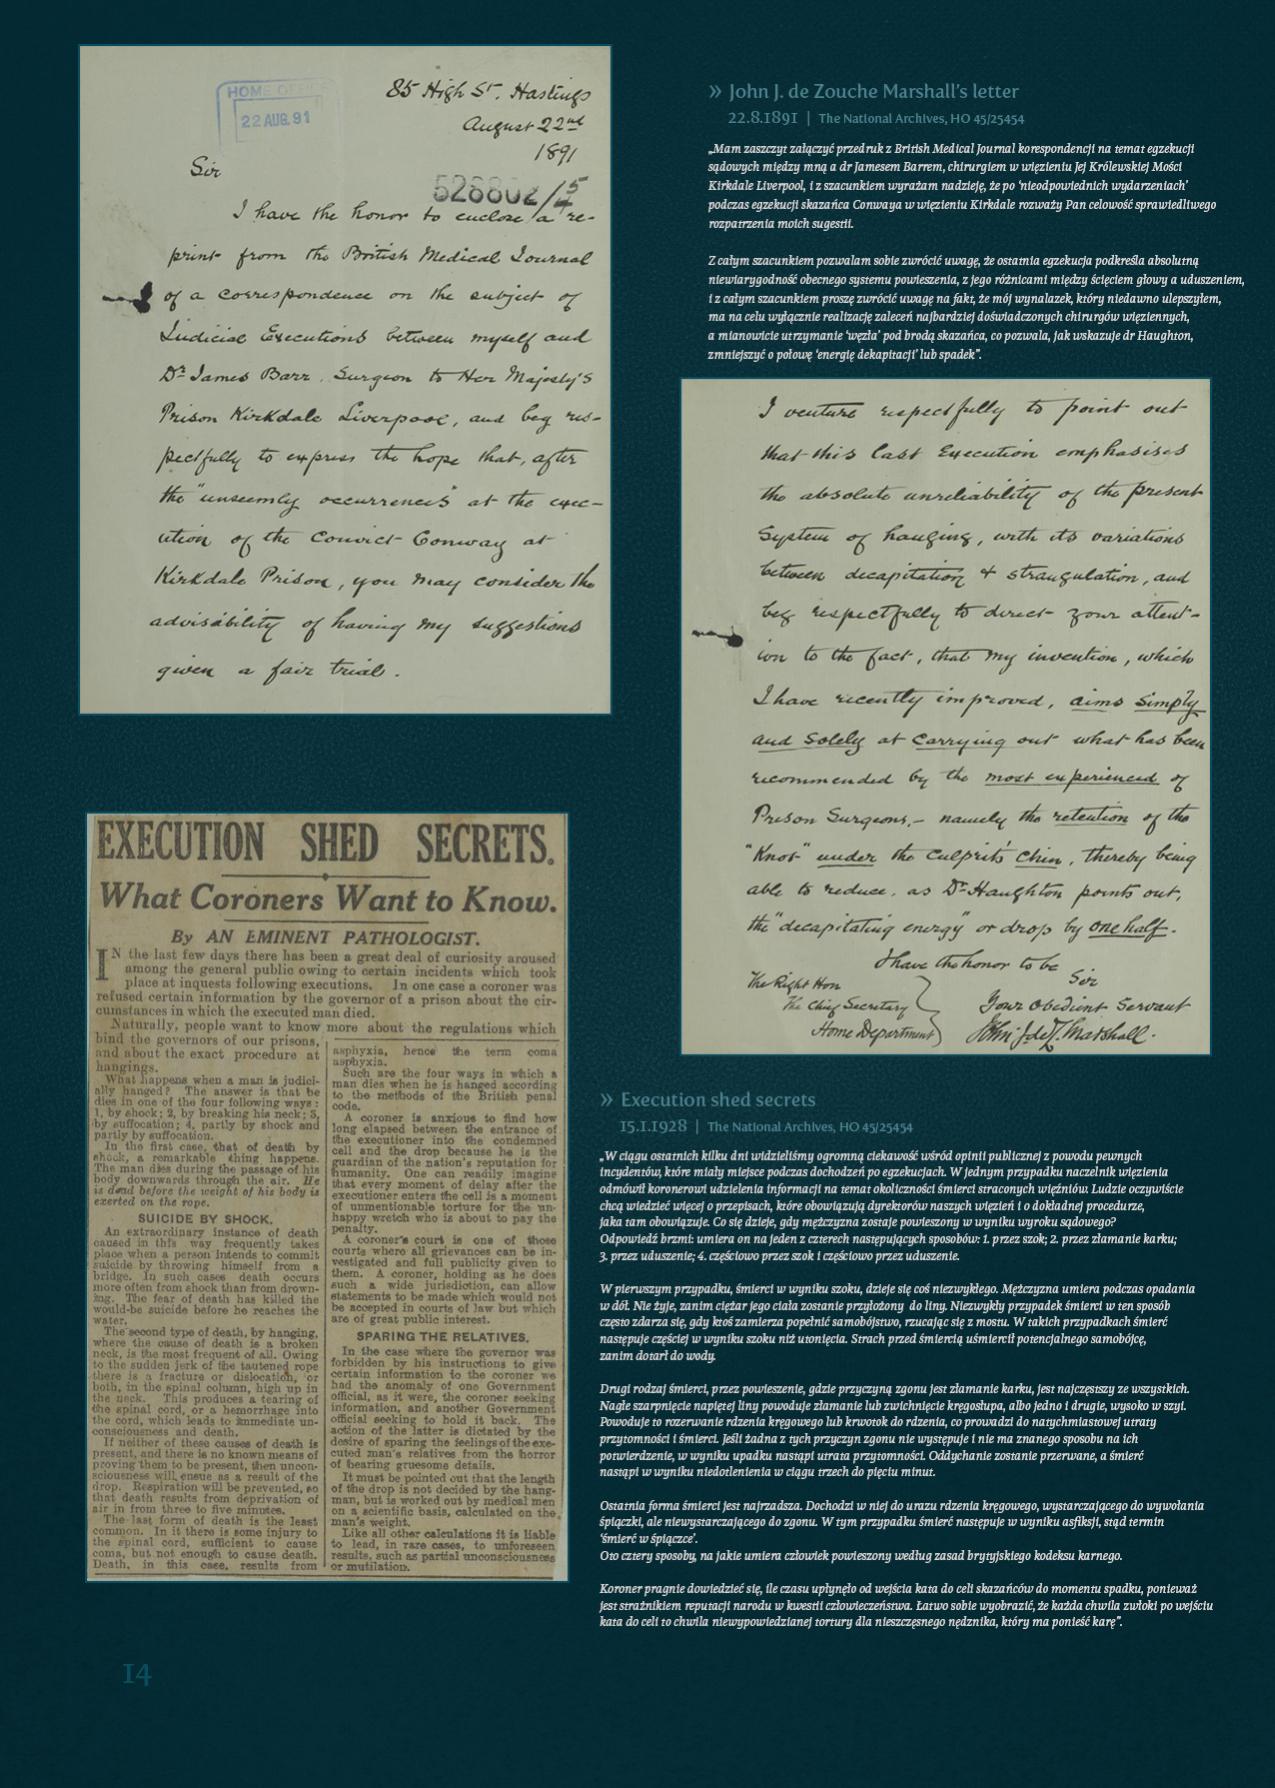 HOME OFFICE
22 AUG. 91
85 High St. Hastings
August 22nd
1891
Sir
526802/5
I have the honor to enclose a re-
print from the British Medical Journal
of a correspondence on the subject of
Judicial Executions between myself and
Dr James Barr, Surgeon to Her Majesty's
Prison Kirkdale Liverpool, and beg res-
pectfully to express the hope that, after
the "unseemly occurrences" at the exec-
ution of the Convict Conway at
Kirkdale Prison, you may consider the
advisability of having my suggestions
given a fair trial.
» John J. de Zouche Marshall's letter
22.8.1891 | The National Archives, HO 45/25454
„Mam zaszczyt załączyć przedruk z British Medical Journal korespondencji na temat egzekucji
sądowych między mną a dr Jamesem Barrem, chirurgiem w więzieniu Jej Królewskiej Mości
Kirkdale Liverpool, i z szacunkiem wyrażam nadzieję, że po 'nieodpowiednich wydarzeniach'
podczas egzekucji skazańca Conwaya w więzieniu Kirkdale rozważy Pan celowość sprawiedliwego
rozpatrzenia moich sugestii.
Z całym szacunkiem pozwalam sobie zwrócić uwagę, że ostatnia egzekucja podkreśla absolutną
niewiarygodność obecnego systemu powieszenia, z jego różnicami między ścięciem głowy a uduszeniem,
i z całym szacunkiem proszę zwrócić uwagę na fakt, że mój wynalazek, który niedawno ulepszyłem,
ma na celu wyłącznie realizację zaleceń najbardziej doświadczonych chirurgów więziennych,
a mianowicie utrzymanie 'węzła' pod brodą skazańca, co pozwala, jak wskazuje dr Haughton,
zmniejszyć o połowę 'energię dekapitacji' lub spadek".
I venture respectfully to point out
that this last Execution emphasises
the absolute unreliability of the present
System of hanging, with its variations
between decapitation & strangulation, and
beg respectfully to direct your attent-
ion to the fact, that my invention, which
I have recently improved, aims simply
and solely at carrying out what has been
recommended by the most experienced of
Prison Surgeons,- namely the retention of the
"Knot" under the culprit's chin, thereby being
able to reduce, as Dr Haughton points out,
the "decapitating energy" or drop by one half.
I have the honor to be
Sir
Your Obedient Servant
John J. de Z. Marshall.
The Right Hon
The Chief Secretary
Home Department
EXECUTION SHED SECRETS.
What Coroners Want to Know.
By AN EMINENT PATHOLOGIST.
IN the last few days there has been a great deal of curiosity aroused
among the general public owing to certain incidents which took
place at inquests following executions. In one case a coroner was
refused certain information by the governor of a prison about the cir-
cumstances in which the executed man died.
Naturally, people want to know more about the regulations which
bind the governors of our prisons,
and about the exact procedure at
hangings.
What happens when a man is judici-
ally hanged? The answer is that he
dies in one of the four following ways:
1, by shock; 2, by breaking his neck; 3,
by suffocation; 4, partly by shock and
partly by suffocation.
In the first case, that of death by
shock, a remarkable thing happens.
The man dies during the passage of his
body downwards through the air. He
is dead before the weight of his body is
exerted on the rope.
SUICIDE BY SHOCK.
An extraordinary instance of death
caused in this way frequently takes
place when a person intends to commit
suicide by throwing himself from a
bridge. In such cases death occurs
more often from shock than from drown-
ing. The fear of death has killed the
would-be suicide before he reaches the
water.
The second type of death, by hanging,
where the cause of death is a broken
neck, is the most frequent of all. Owing
to the sudden jerk of the tautened rope
there is a fracture or dislocation, or
both, in the spinal column, high up in
the neck. This produces a tearing of
the spinal cord, or a hemorrhage into
the cord, which leads to immediate un-
consciousness and death.
If neither of these causes of death is
present, and there is no known means of
proving them to be present, then uncon-
sciousness will ensue as a result of the
drop. Respiration will be prevented, so
that death results from deprivation of
air in from three to five minutes.
The last form of death is the least
common. In it there is some injury to
the spinal cord, sufficient to cause
coma, but not enough to cause death.
Death, in this case, results from
asphyxia, hence the term coma
asphyxia.
Such are the four ways in which a
man dies when he is hanged according
to the methods of the British penal
code.
A coroner is anxious to find how
long elapsed between the entrance of
the executioner into the condemned
cell and the drop because he is the
guardian of the nation's reputation for
humanity. One can readily imagine
that every moment of delay after the
executioner enters the cell is a moment
of unmentionable torture for the un-
happy wretch who is about to pay the
penalty.
A coroner's court is one of those
courts where all grievances can be in-
vestigated and full publicity given to
them. A coroner, holding as he does
such a wide jurisdiction, can allow
statements to be made which would not
be accepted in courts of law but which
are of great public interest.
SPARING THE RELATIVES.
In the case where the governor was
forbidden by his instructions to give
certain information to the coroner we
had the anomaly of one Government
official, as it were, the coroner seeking
information, and another Government
official seeking to hold it back. The
action of the latter is dictated by the
desire of sparing the feelings of the exe-
cuted man's relatives from the horror
of hearing gruesome details.
It must be pointed out that the length
of the drop is not decided by the hang-
man, but is worked out by medical men
on a scientific basis, calculated on the
man's weight.
Like all other calculations it is liable
to lead, in rare cases, to unforeseen
results, such as partial unconsciousness
or mutilation.
» Execution shed secrets
15.1.1928 | The National Archives, HO 45/25454
„W ciągu ostatnich kilku dni widzieliśmy ogromną ciekawość wśród opinii publicznej z powodu pewnych
incydentów, które miały miejsce podczas dochodzeń po egzekucjach. W jednym przypadku naczelnik więzienia
odmówił koronerowi udzielenia informacji na temat okoliczności śmierci straconych więźniów. Ludzie oczywiście
chcą wiedzieć więcej o przepisach, które obowiązują dyrektorów naszych więzień i o dokładnej procedurze,
jaka tam obowiązuje. Co się dzieje, gdy mężczyzna zostaje powieszony w wyniku wyroku sądowego?
Odpowiedź brzmi: umiera on na jeden z czterech następujących sposobów: 1. przez szok; 2. przez złamanie karku;
3. przez uduszenie; 4. częściowo przez szok i częściowo przez uduszenie.
W pierwszym przypadku, śmierci w wyniku szoku, dzieje się coś niezwykłego. Mężczyzna umiera podczas opadania
w dół. Nie żyje, zanim ciężar jego ciała zostanie przyłożony do liny. Niezwykły przypadek śmierci w ten sposób
często zdarza się, gdy ktoś zamierza popełnić samobójstwo, rzucając się z mostu. W takich przypadkach śmierć
następuje częściej w wyniku szoku niż utonięcia. Strach przed śmiercią uśmiercił potencjalnego samobójcę,
zanim dotarł do wody.
Drugi rodzaj śmierci, przez powieszenie, gdzie przyczyną zgonu jest złamanie karku, jest najczęstszy ze wszystkich.
Nagłe szarpnięcie napiętej liny powoduje złamanie lub zwichnięcie kręgosłupa, albo jedno i drugie, wysoko w szyi.
Powoduje to rozerwanie rdzenia kręgowego lub krwotok do rdzenia, co prowadzi do natychmiastowej utraty
przytomności i śmierci. Jeśli żadna z tych przyczyn zgonu nie występuje i nie ma znanego sposobu na ich
potwierdzenie, w wyniku upadku nastąpi utrata przytomności. Oddychanie zostanie przerwane, a śmierć
nastąpi w wyniku niedotlenienia w ciągu trzech do pięciu minut.
Ostatnia forma śmierci jest najrzadsza. Dochodzi w niej do urazu rdzenia kręgowego, wystarczającego do wywołania
śpiączki, ale niewystarczającego do zgonu. W tym przypadku śmierć następuje w wyniku asfiksji, stąd termin
'śmierć w śpiączce'.
Oto cztery sposoby, na jakie umiera człowiek powieszony według zasad brytyjskiego kodeksu karnego.
Koroner pragnie dowiedzieć się, ile czasu upłynęło od wejścia kata do celi skazańców do momentu spadku, ponieważ
jest strażnikiem reputacji narodu w kwestii człowieczeństwa. Łatwo sobie wyobrazić, że każda chwila zwłoki po wejściu
kata do celi to chwila niewypowiedzianej tortury dla nieszczęsnego nędznika, który ma ponieść karę".
14